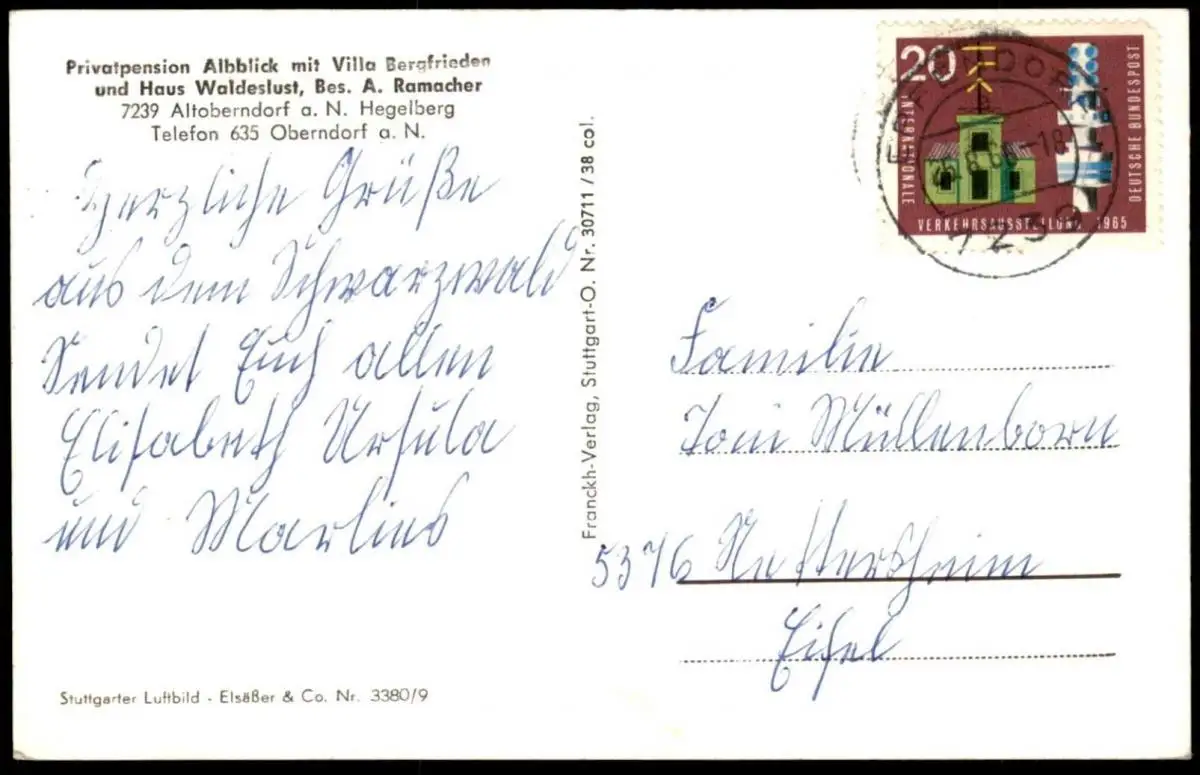 Privatpension Albblick mit Villa Bergfrieden
und Haus Waldeslust, Bes. A. Ramacher
7239 Altoberndorf a. N. Hegelberg
Telefon 635 Oberndorf a. N.
Herzliche Grüße
aus dem Schwarzwald
Sendet Euch allen
Elisabeth Ursula
und Marlies
Stuttgarter Luftbild - Elsäßer & Co. Nr. 3380/9
Franckh-Verlag, Stuttgart-O. Nr. 30711 / 38 col.
20
INTERNATIONALE
VERKEHRSAUSSTELLUNG 1965
DEUTSCHE BUNDESPOST
EPFENDORF
7239
Familie
Toni Müllenborn
5376 Nettersheim
Eifel